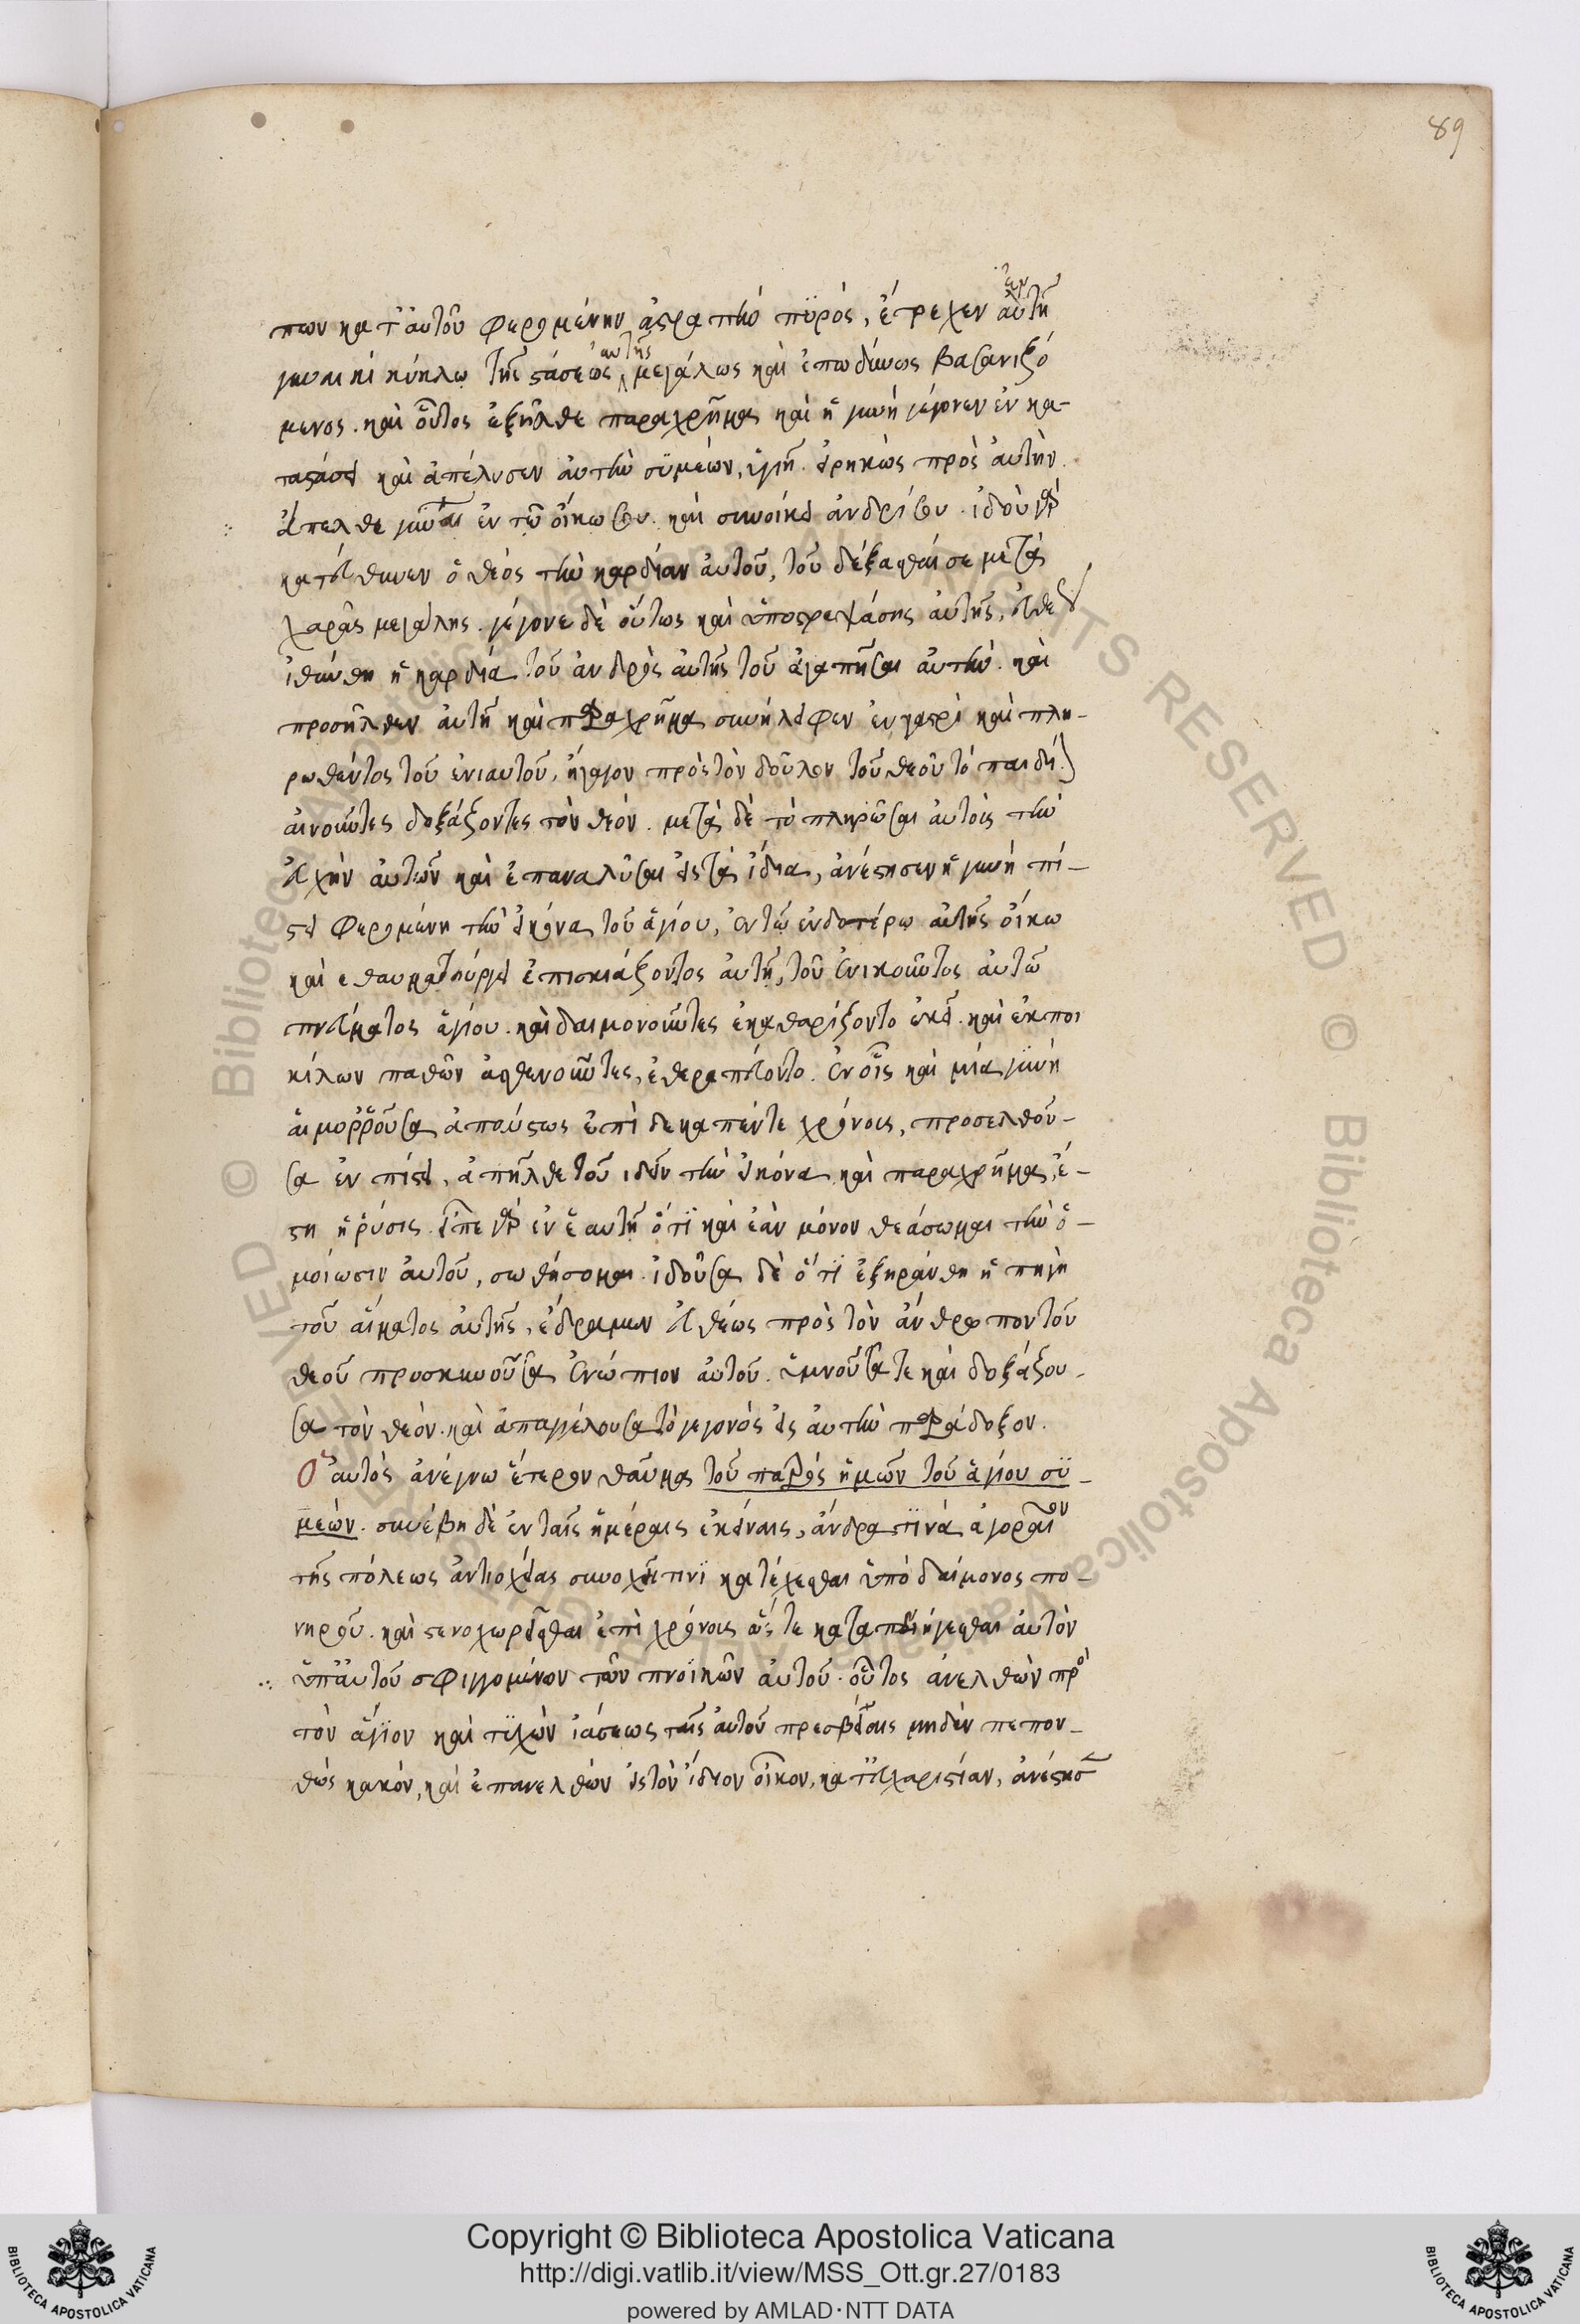 89
πων κατ' αὐτοῦ φερομένην ἀστραπὴν πϋρός, ἔτρεχεν ἐν αὐτῆ
γυναικὶ κύκλω τῆς στάσεως αὐτῆς μεγάλως καὶ ἐπωδύνως βασανιζό
μενος. καὶ οὗτος ἐξῆλθε παραχρῆμα καὶ ἡ γυνὴ γέγονεν ἐν κα-
ταστάσει καὶ ἀπέλυσεν αὐτὴν σϋμεών, εἰρηκὼς πρὸς αὐτήν.
ἄπελθε γύναι ἐν τῶ οἴκω σου. καὶ συνοίκει ἀνδρί σου. ἰδοὺ γὰρ
κατεύθυνεν ὁ θεὸς τὴν καρδίαν αὐτοῦ, τοῦ δέξασθαί σε μετὰ
χαρᾶς μεγάλης. γέγονε δὲ οὕτως καὶ ὑποστρεψάσης αὐτῆς, εὐθὺς
ἰθύνθη ἡ καρδία τοῦ ἀνδρὸς αὐτῆς τοῦ ἀγαπῆσαι αὐτήν. καὶ
προσῆλθεν αὐτῆ καὶ παραχρῆμα συνήλειφεν ἐν γαστρὶ καὶ πλη-
ρωθέντος τοῦ ἐνιαυτοῦ, ἤγαγον πρὸς τὸν δοῦλον τοῦ θεοῦ τὸ παιδίον
αἰνοῦντες δοξάζοντες τὸν θεόν. μετὰ δὲ τὸ πληρῶσαι αὐτοὺς τὴν
εὐχὴν αὐτῶν καὶ ἐπαναλῦσαι εἰς τὰ ἴδια, ἀνέστησεν ἡ γυνὴ πί-
στει φερομένη τὴν εἰκόνα τοῦ ἁγίου, ἐν τῶ ἐνδοτέρω αὐτῆς οἴκω
καὶ ἐθαυματούργει ἐπισκιάζοντος αὐτῆ, τοῦ ἐνοικοῦντος αὐτῶ
πνεύματος ἁγίου. καὶ δαιμονοῦντες ἐκαθαρίζοντο ἐκεῖ. καὶ ἐκ ποι
κίλων παθῶν ἀσθενοῦντες, ἐθεραπεύοντο. ἐν οἷς καὶ μία γϋνὴ
αἱμορροοῦσα ἀπαύστως ἐπὶ δεκαπέντε χρόνοις, προσελθοῦ-
σα ἐν πίστει, ἀπῆλθε τοῦ ἰδεῖν τὴν εἰκόνα καὶ παραχρῆμα, ἔ-
στη ἡ ῥύσις. εἶπε γὰρ ἐν ἑαυτῆ ὅτϊ καὶ ἐὰν μόνον θεάσωμαι τὴν ὁ-
μοίωσιν αὐτοῦ, σωθήσομαι. ἰδοῦσα δὲ ὅτϊ ἐξηράνθη ἡ πηγὴ
τοῦ αἵματος αὐτῆς, ἔδραμεν εὐθέως πρὸς τὸν ἄνθρωπον τοῦ
θεοῦ προσκυνοῦσα ἐνώπιον αὐτοῦ. ὑμνοῦσα τε καὶ δοξάζου-
σα τὸν θεόν. καὶ ἀπαγγέλουσα τὸ γεγονὸς εἰς αὐτὴν παράδοξον.
Ὁ αὐτὸς ἀνέγνω ἕτερον θαῦμα τοῦ πατρός ἡμῶν τοῦ ἁγίου σϋ-
μεών. συνέβη δὲ ἐν ταῖς ἡμέραις ἐκείναις, ἄνδρα τϊνὰ ἀγοραῖον
τῆς πόλεως ἀντιοχείας συνοχῆ τινϊ κατέχεσθαι ὑπὸ δαίμονος πο-
νηροῦ. καὶ στενοχωρεῖσθαι ἐπὶ χρόνοις ὥστε καταπνίγεσθαι αὐτὸν
ὑπ' αὐτοῦ σφιγγομένων τῶν πνοϊκῶν αὐτοῦ. οὗτος ἀνελθὼν πρὸς
τὸν ἅγϊον καὶ τϋχὼν ἰάσεως ταῖς αὐτοῦ πρεσβείαις μηδὲν πεπον-
θὼς κακόν, καὶ ἐπανελθὼν εἰς τὸν ἴδιον οἶκον, κατ' εὐχαριστίαν, ἀνέστησεν
Copyright © Biblioteca Apostolica Vaticana
http://digi.vatlib.it/view/MSS_Ott.gr.27/0183
powered by AMLAD·NTT DATA